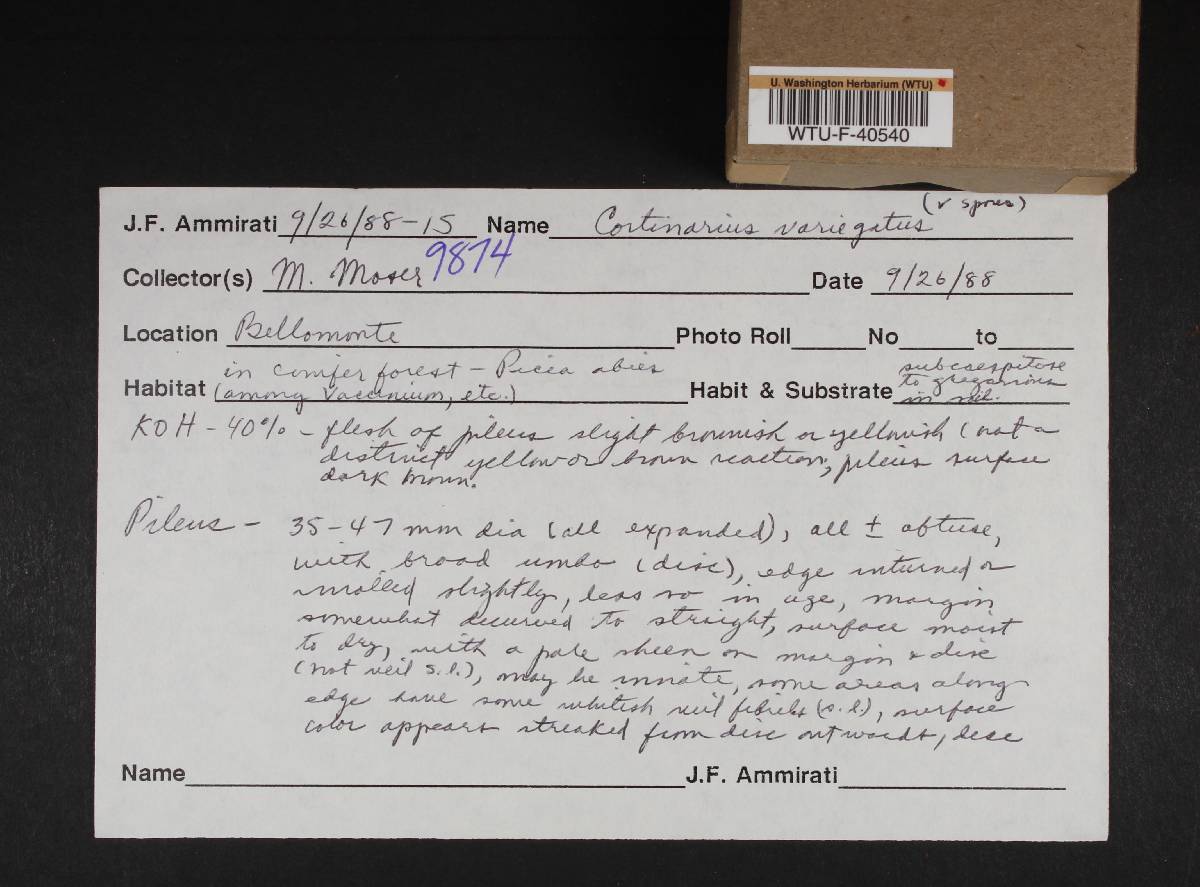 U. Washington Herbarium (WTU)
WTU-F-40540
(✓ spores)
J.F. Ammirati 9/26/88-15 Name Cortinarius variegatus
Collector(s) M. Moser 9874 Date 9/26/88
Location Bellomonte Photo Roll No to
in conifer forest - Picea abies
Habitat (among Vaccinium, etc.) Habit & Substrate subcaespitose
to gregarious
in soil.
KOH - 40% - flesh of pileus slight brownish or yellowish (not a
distinct yellow or brown reaction, pileus surface
dark brown.
Pileus - 35-47 mm dia (all expanded), all ± obtuse,
with broad umbo (disc), edge inturned or
inrolled slightly, less so in age, margin
somewhat decurved to straight, surface moist
to dry, with a pale sheen on margin & disc
(not veil s.l.), may be innate, some areas along
edge have some whitish veil fibrils (s.l.), surface
color appears streaked from disc outwards, disc
Name J.F. Ammirati